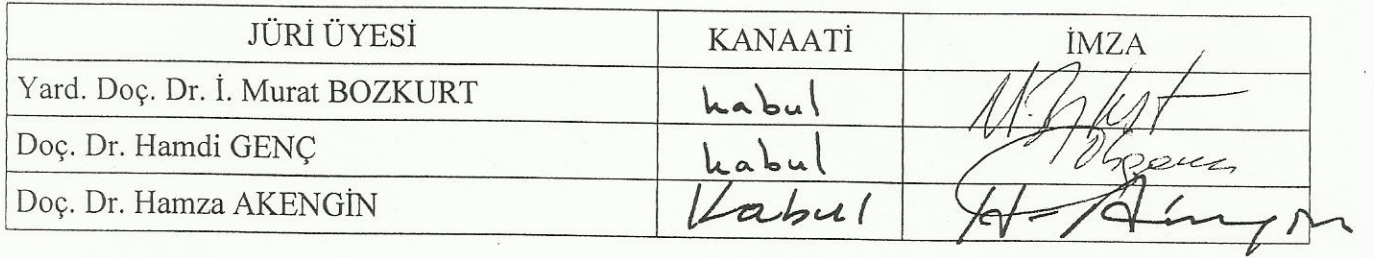 JÜRİ ÜYESİ KANAATİ İMZA
Yard. Doç. Dr. İ. Murat BOZKURT kabul
Doç. Dr. Hamdi GENÇ kabul
Doç. Dr. Hamza AKENGİN Kabul